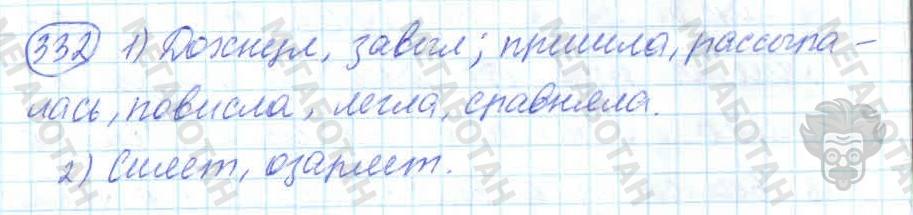 332 1) Дохнул, завыл; пришла, рассыпа-
лась, повисла, легла, сравняла.
2) Сияет, озаряет.
МЕГАБОТАН